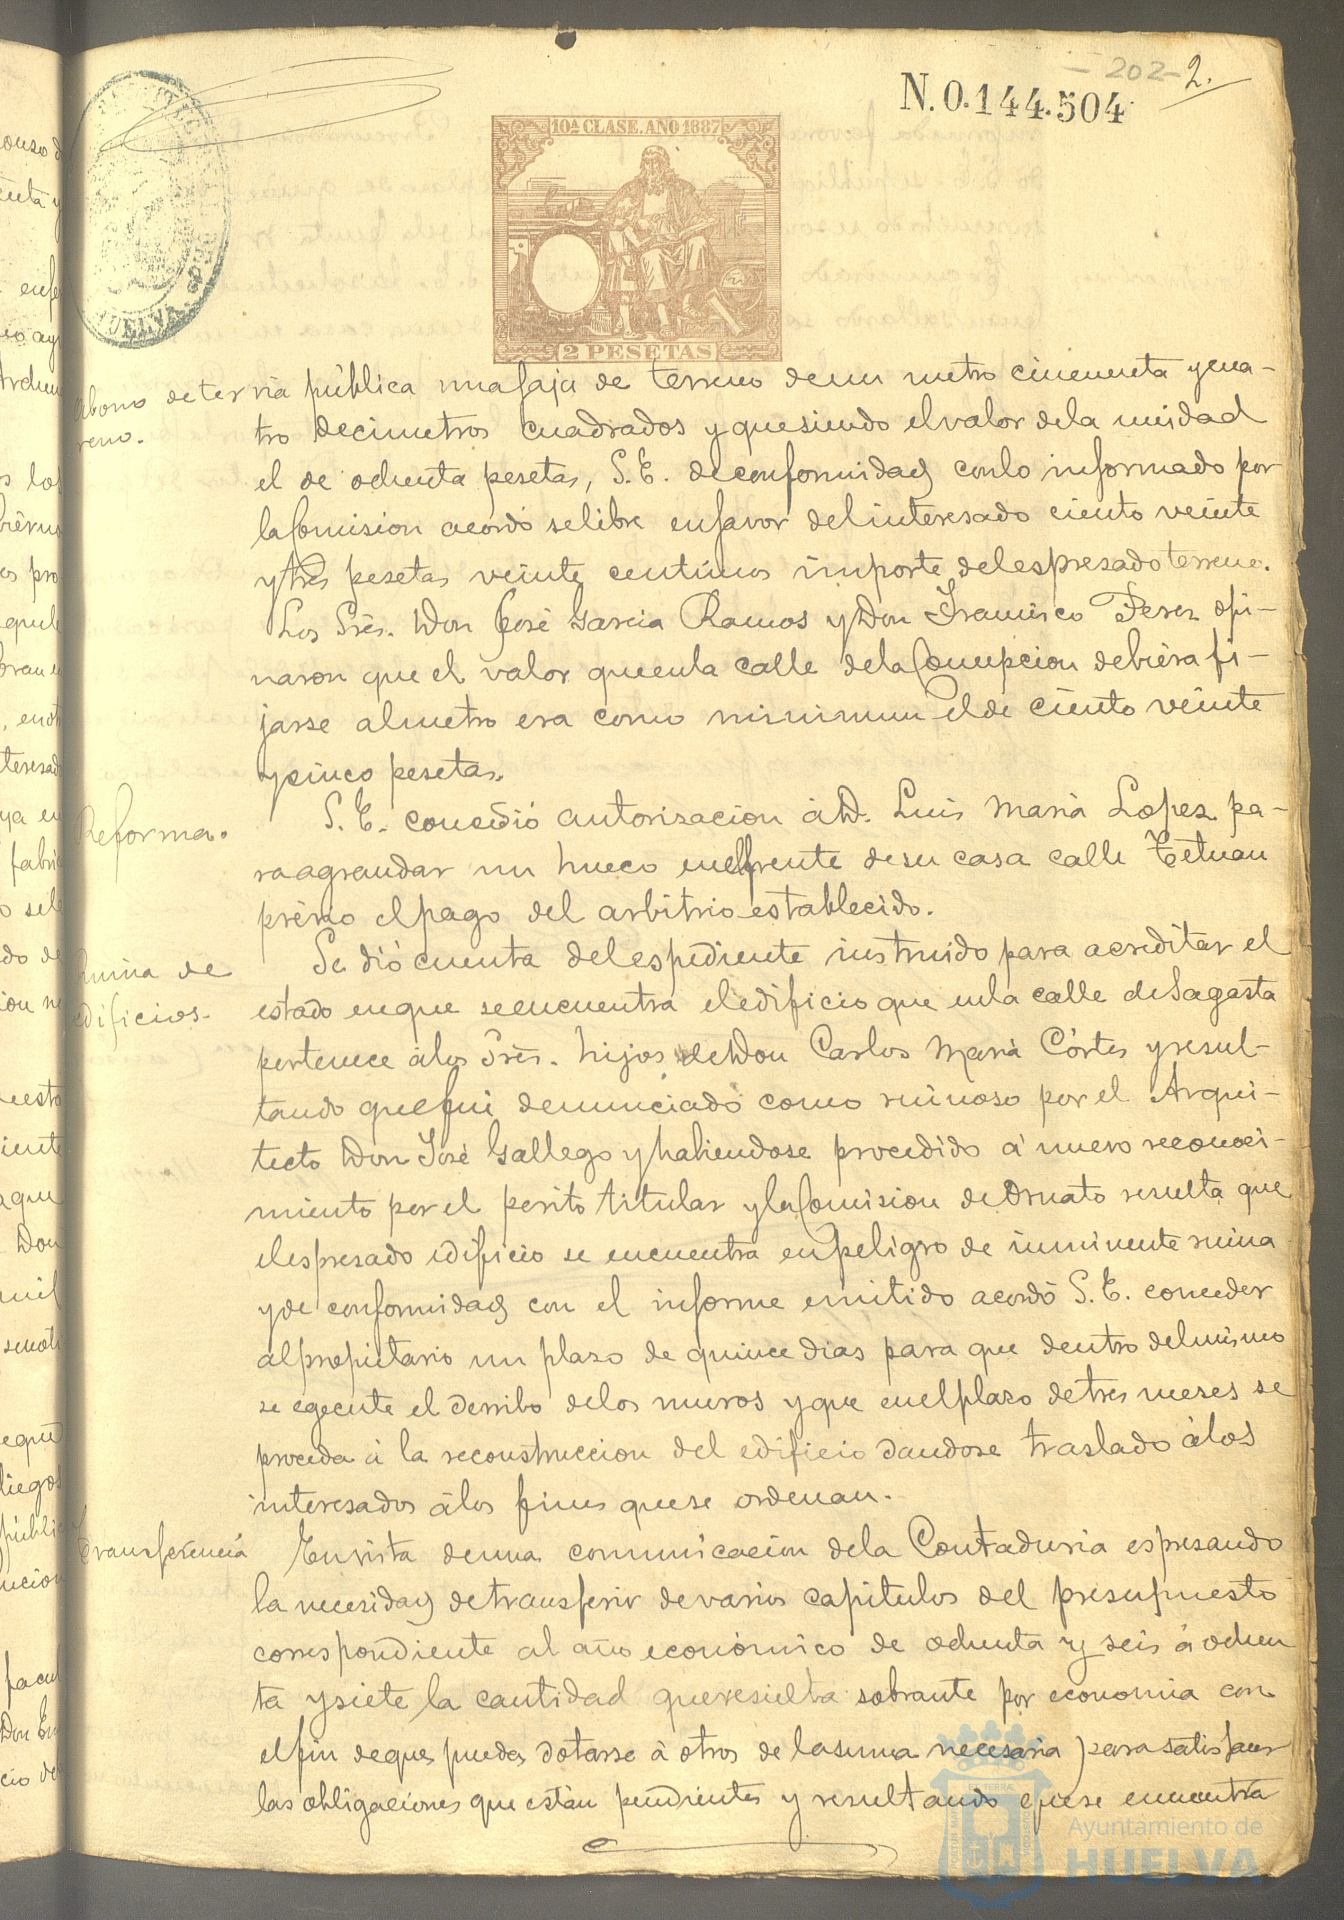 - 202 - 2.
N. 0.144.504
10ª CLASE. AÑO 1887
2 PESETAS
HUELVA
Abono de ter
reno.
via pública una faja de terreno de un metro cincuenta y cua-
tro decimetros cuadrados y que siendo el valor de la unidad
el de ochenta pesetas, S. E. de conformidad con lo informado por
la Comision acordó se libre en favor del interesado ciento veinte
y tres pesetas veinte centimos importe del espresado terreno.
Los Srés. Don José Garcia Ramos y Don Francisco Perez opi-
naron que el valor que en la calle de la Concepcion debiera fi-
jarse al metro era como minimum el de ciento veinte
y cinco pesetas.
Reforma.
S. E. concedió autorizacion á D. Luis Maria Lopez pa-
ra agrandar un hueco en el frente de su casa calle Tetuan
prévio el pago del arbitrio establecido.
Ruina de
edificios.
Se dió cuenta del espediente instruido para acreditar el
estado en que se encuentra el edificio que en la calle de Sagasta
pertenece á los Srés. hijos de Don Carlos Maria Córtes y resul-
tando que fué denunciado como ruinoso por el Arqui-
tecto Don José Gallego y habiendose procedido á nuevo reconoci-
miento por el perito titular y la Comision de Ornato resulta que
el espresado edificio se encuentra en peligro de inminente ruina
y de conformidad con el informe emitido acordó S. E. conceder
al propietario un plazo de quince dias para que dentro del mismo
se egecute el derribo de los muros y que en el plazo de tres meses se
proceda á la reconstruccion del edificio dandose traslado á los
interesados á los fines que se ordenan.
Transferencia
En vista de una comunicacion de la Contaduria espresando
la necesidad de transferir de varios capitulos del presupuesto
correspondiente al año económico de ochenta y seis á ochen
ta y siete la cantidad que resulta sobrante por economia con
el fin de que pueda dotarse á otros de la suma necesaria para satisfacer
las obligaciones que están pendientes y resultando que se encuentra
Ayuntamiento de
HUELVA